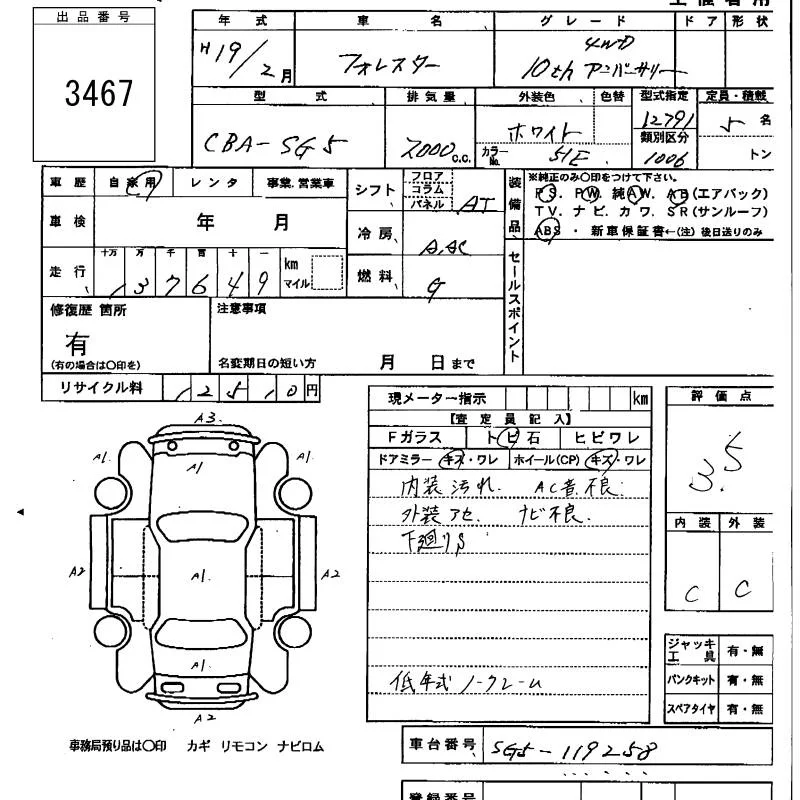 出品番号
3467
年式 車名 グレード ドア 形状
H19/2月 フォレスター 4WD
10th アニバーサリー
型式 排気量 外装色 色替 型式指定 定員・積載
CBA-SG5 2000c.c. ホワイト 12791 5名
カラーNo. 51E 類別区分 1006 トン
車歴 自家用 レンタ 事業.営業車
車検 年 月
走行 十万 万 千 百 十 一
137649 km マイル
シフト フロア コラム パネル AT
冷房 AAC
燃料 G
装備品
※純正のみ○印をつけて下さい。
PS. PW. 純AW. AB(エアバック)
TV. ナビ. カワ. SR(サンルーフ)
ABS ・ 新車保証書←(注)後日送りのみ
セールスポイント
修復歴 箇所
有
(有の場合は○印を)
注意事項
名変期日の短い方 月 日まで
リサイクル料 12510円
現メーター指示 km
【査定員記入】
Fガラス トビ石 ヒビワレ
ドアミラー キズ・ワレ ホイール(CP) キズ・ワレ
内装汚れ. AC音.不良.
外装アセ. ナビ不良.
下廻りS
低年式ノークレーム
評価点
3.5
内装 外装
C C
ジャッキ工具 有・無
パンクキット 有・無
スペアタイヤ 有・無
A3.
A1. A1 A1.
A2 A1. A2
A1.
A2
事務局預り品は○印 カギ リモコン ナビロム
車台番号 SG5-119258
登録番号